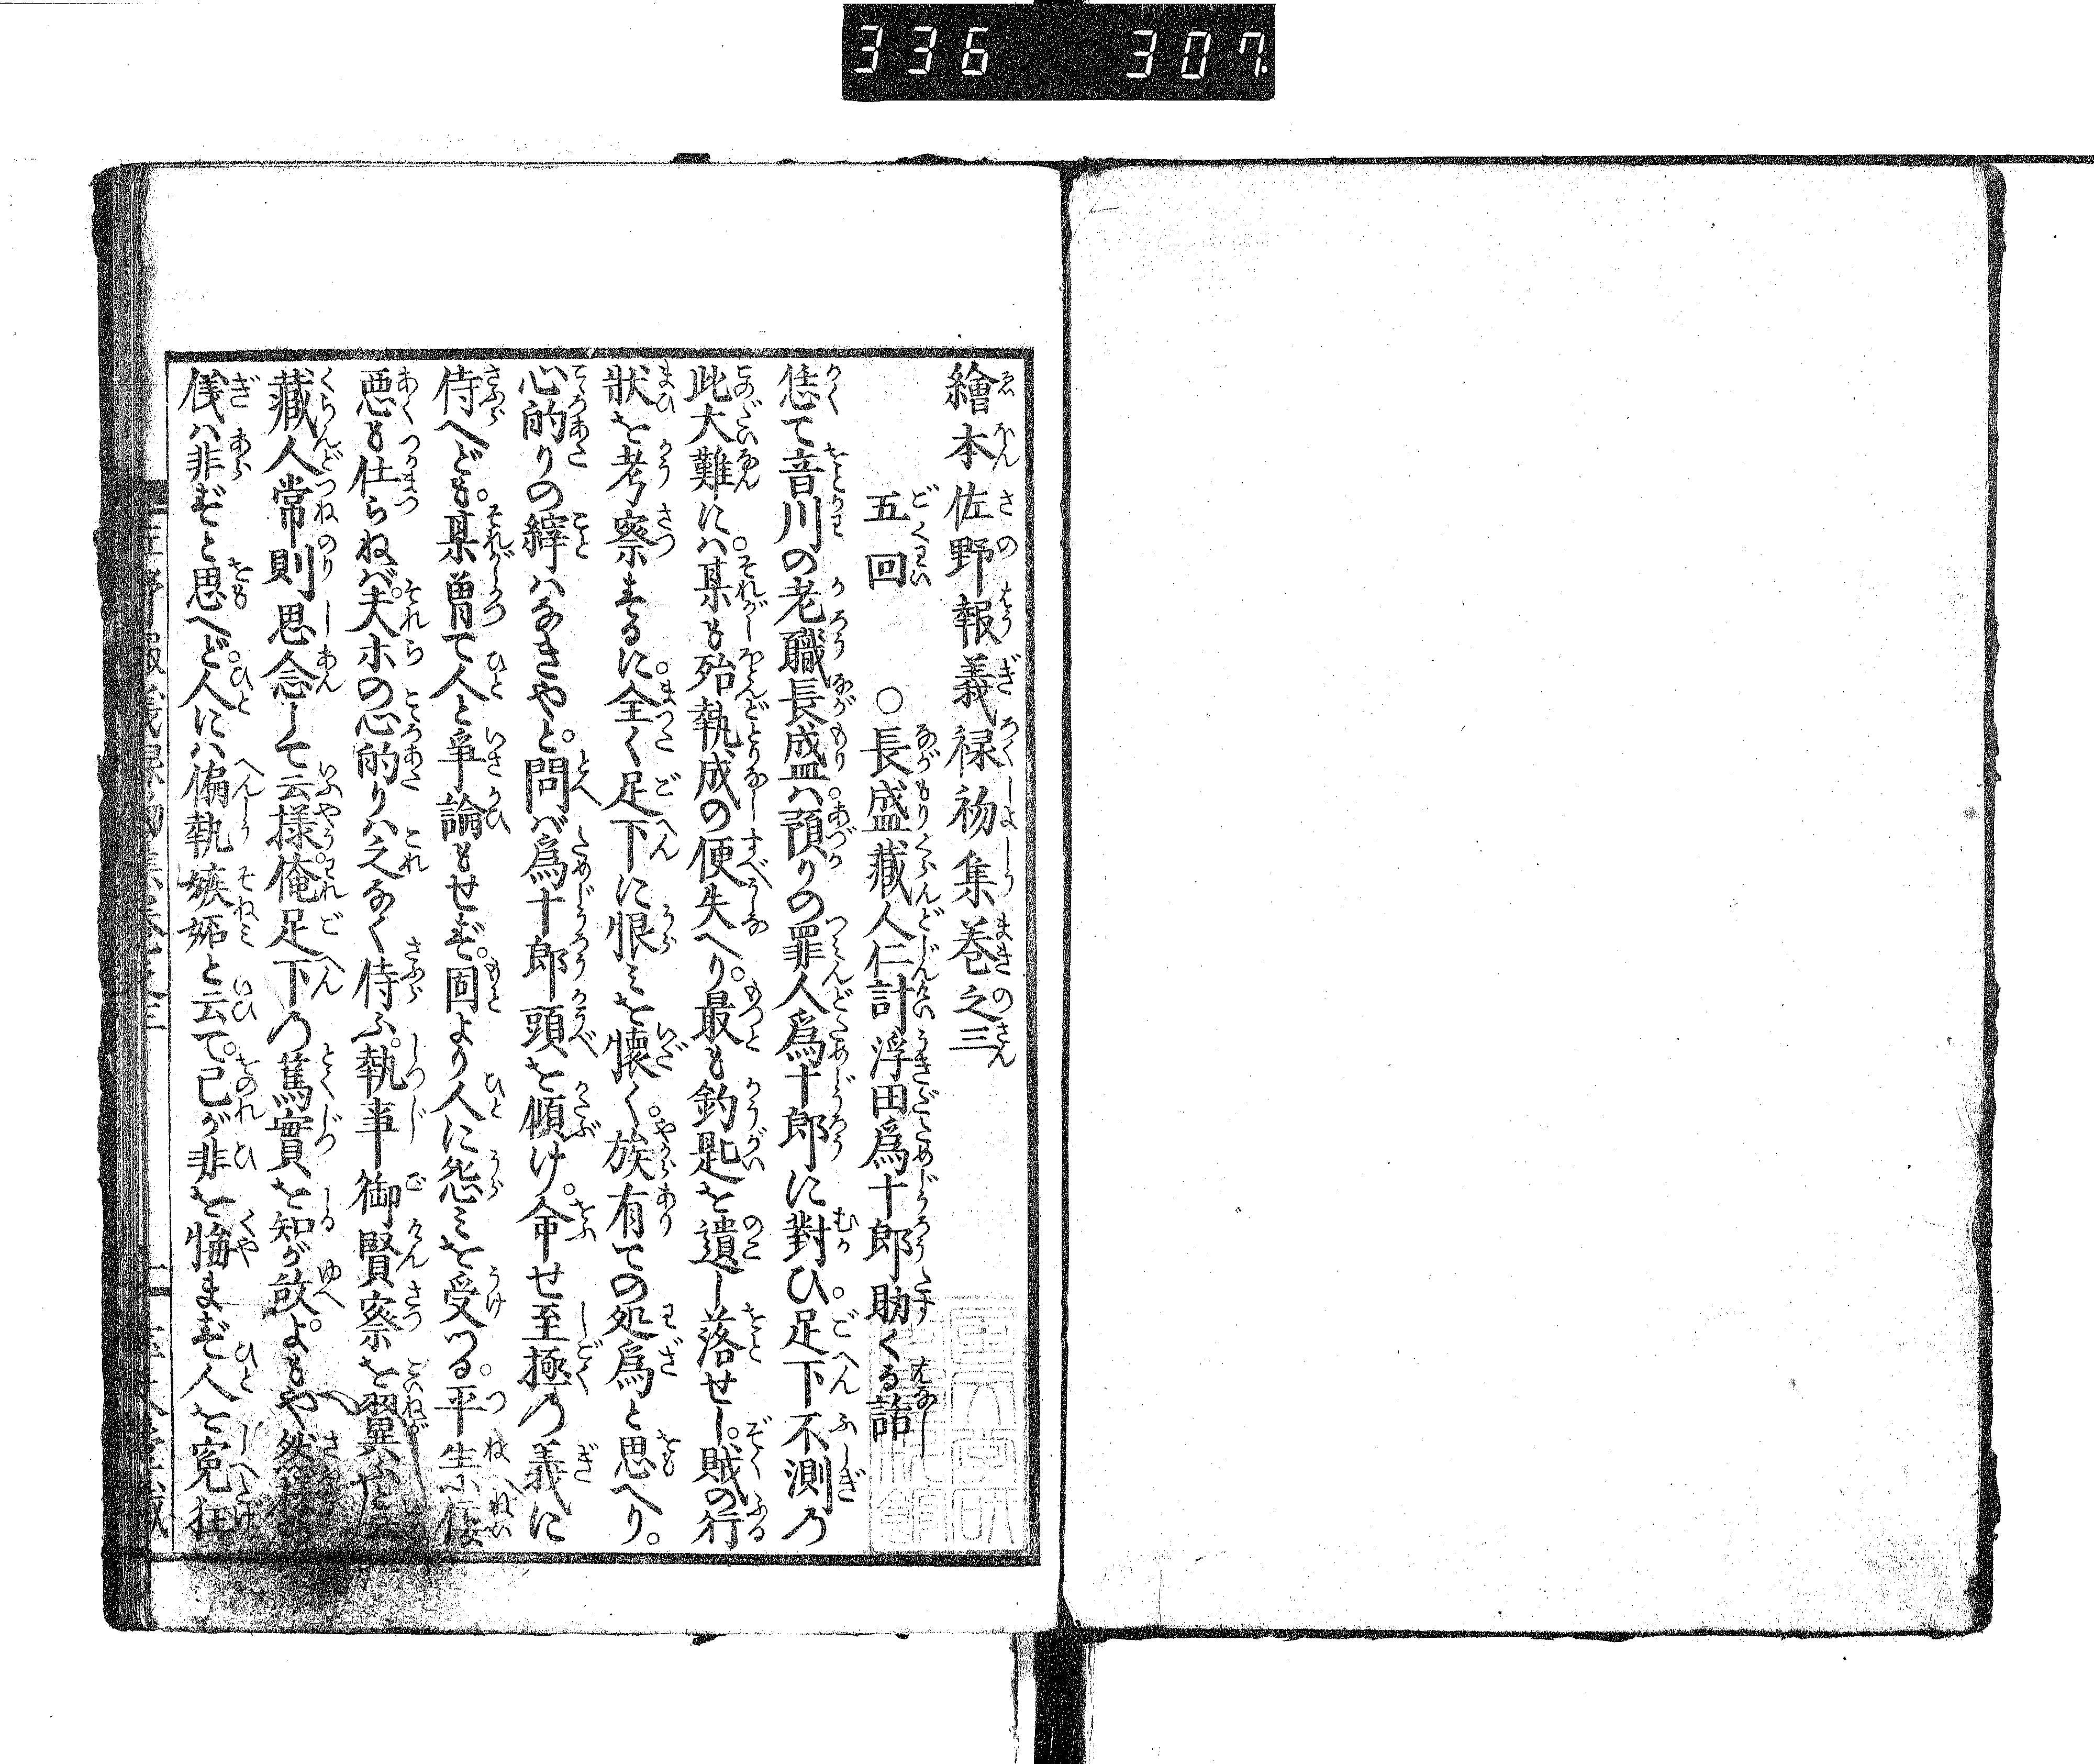 336 307
繪本佐野報義禄初集巻之三
五回 ○長盛藏人仁計浮田爲十郎助くる話
恁て音川の老職長盛ハ。預りの罪人爲十郎に對ひ。足下不測乃
此大難にハ。某も殆執成の便失へり。最も釣匙を遺し落せし。賊の行
狀を考察まるに。全く足下に恨ミを懐く。族有ての処爲と思へり。
心的りの縡ハなきやと。問バ爲十郎頭を傾け。命せ至極乃義に
侍へども。某曽て人と爭論もせず。固より人に怨ミを受つる。平生小佞
悪も仕らねバ。夫ホの心的りハ之なく侍ふ。執事御賢察を翼ふと云
藏人常則思念して云様。俺足下乃篤實を知が故。よもや然様の
儀ハ非ずと思へど。人にハ偏執嫉妬と云て。己が非を悔まず人を寃狂